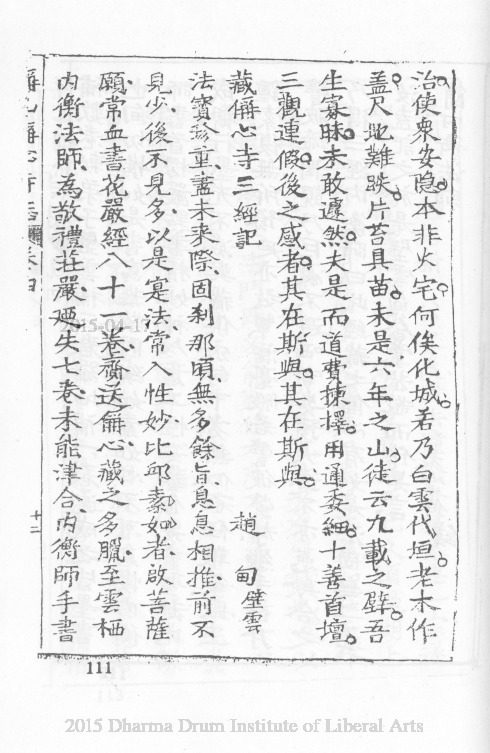 治使衆安隐本非火宅何俟化城若乃白雲代垣老木作
盖尺地難跌片苔具苗未是六年之山徒云九載之壁吾
生寡昧未敢遽然夫是而道費揀擇用通委細十善首壇
三觀連假後之感者其在斯與其在斯與
趙甸壁雲
藏偋心寺三經記
法寶珍重盡未來際固刹那頃無多餘旨息息相推前不
見少後不見多以是寔法常入性妙比邱素如者啟菩薩
願常血書花嚴經八十一卷齎送偋心藏之多臘至雲栖
内衡法師為敬禮莊嚴廼失七卷未能津合内衡師手書
十二
111
2015-04-17
2015 Dharma Drum Institute of Liberal Arts